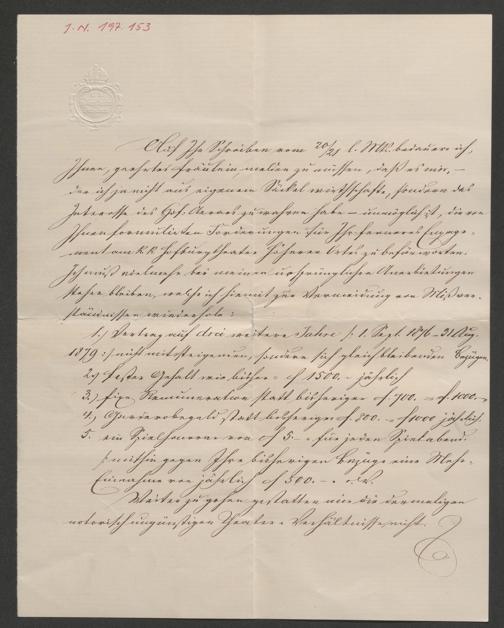 I. N. 197.153
Auf Ihr Schreiben vom 20/21 l. Mts. bedauere ich,
Ihnen, geehrtes Fräulein melden zu müssen, daß es mir, –
der ich ja nicht aus eigenem Säckel wirthschafte, sondern das
Interesse des Hof-Aerars zu wahren habe – unmöglich ist, die von
Ihnen formulirten Forderungen für Ihr ferneres Engage-
ment am k.k. Hofburgtheater höheren Ortes zu befürworten.
Ich muß vielmehr bei meinen ursprünglichen Anerbietungen
stehen bleiben, welche ich hiemit zur Vermeidung von Mißver-
ständnissen wiederhole:
1.) Vertrag auf drei weitere Jahre /: 1. Sept. 1876 – 31 Aug.
1879 :/ nicht mit steigenden, sondern sich gleichbleibenden Bezügen.
2.) Fester Gehalt wie bisher – f 1500. – jährlich
3.) Fixe Remuneration statt bisheriger f 700. – f 1000. –
4.) Garderobegeld statt bisheriger f 800. – f 1000 jährlich
5. ein Spielhonorar von f 5. – für jeden Spielabend.
/: mithin gegen Ihre bisherigen Bezüge eine Mehr-
Einnahme von jährlich f 500. –
Weiter zu gehen gestatten mir die dermaligen
notorisch ungünstigen Theater-Verhältnisse nicht.